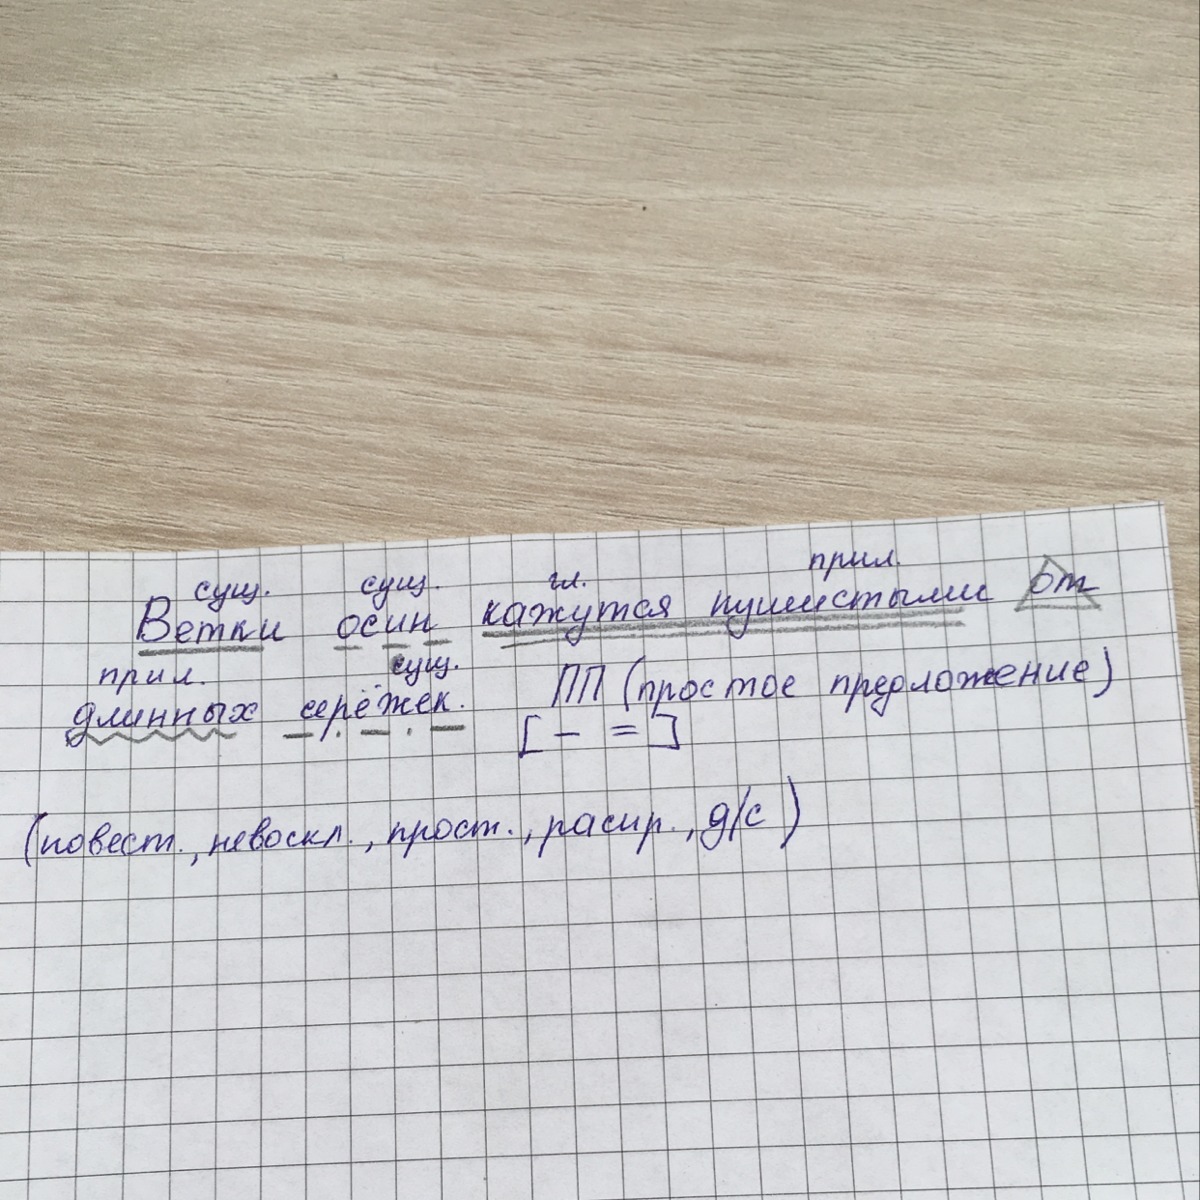 сущ. сущ. гл. прил.
Ветки осин кажутся пушистыми от
прил. сущ.
длинных серёжек. ПП (простое предложение)
[ – = ]
(повест., невоскл., прост., распр., д/с)